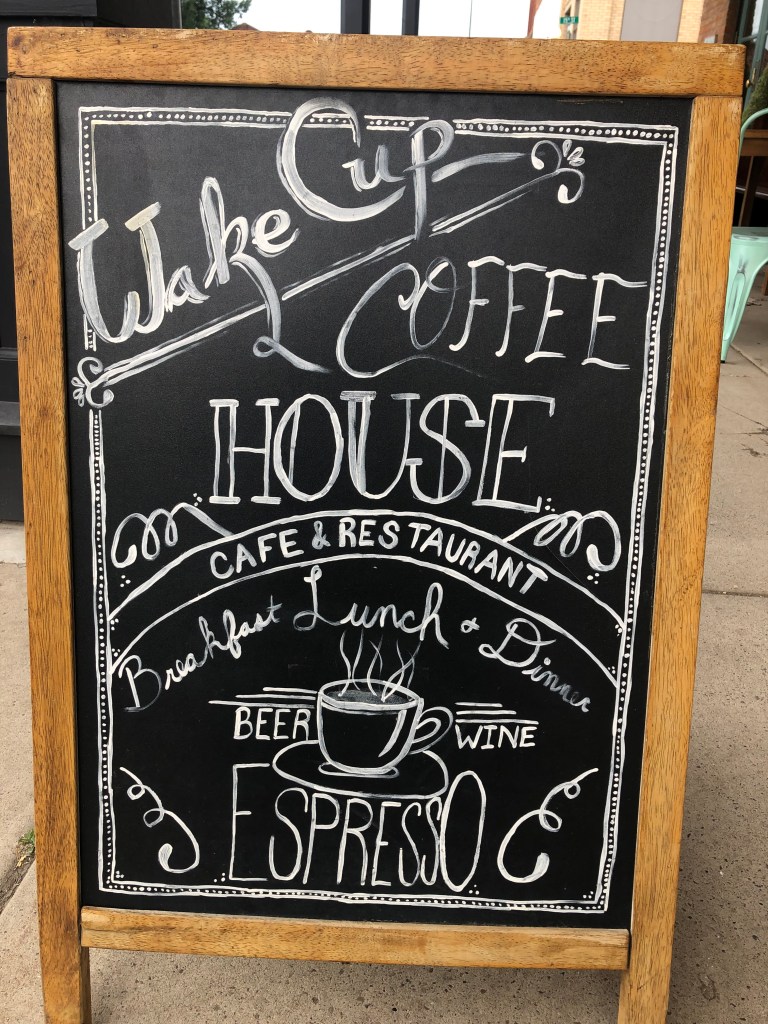 Wake Cup
COFFEE
HOUSE
CAFE & RESTAURANT
Breakfast Lunch & Dinner
BEER WINE
ESPRESSO